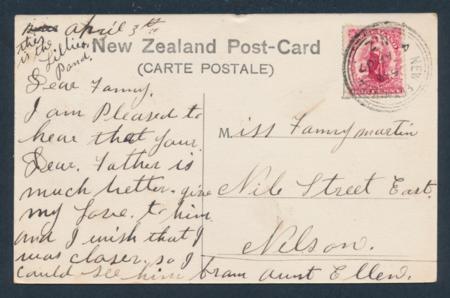 April 3th
this
is the
Lillie
Pond.
New Zealand Post-Card
(CARTE POSTALE)
Dear Fanny.
I am Pleased to
hear that your.
Dear. Father is
much better. give
my Love. to him
and I wish that I
was closer. so I
could see him from aunt Ellen.
Miss Fanny martin
Nile Street East.
Nelson.